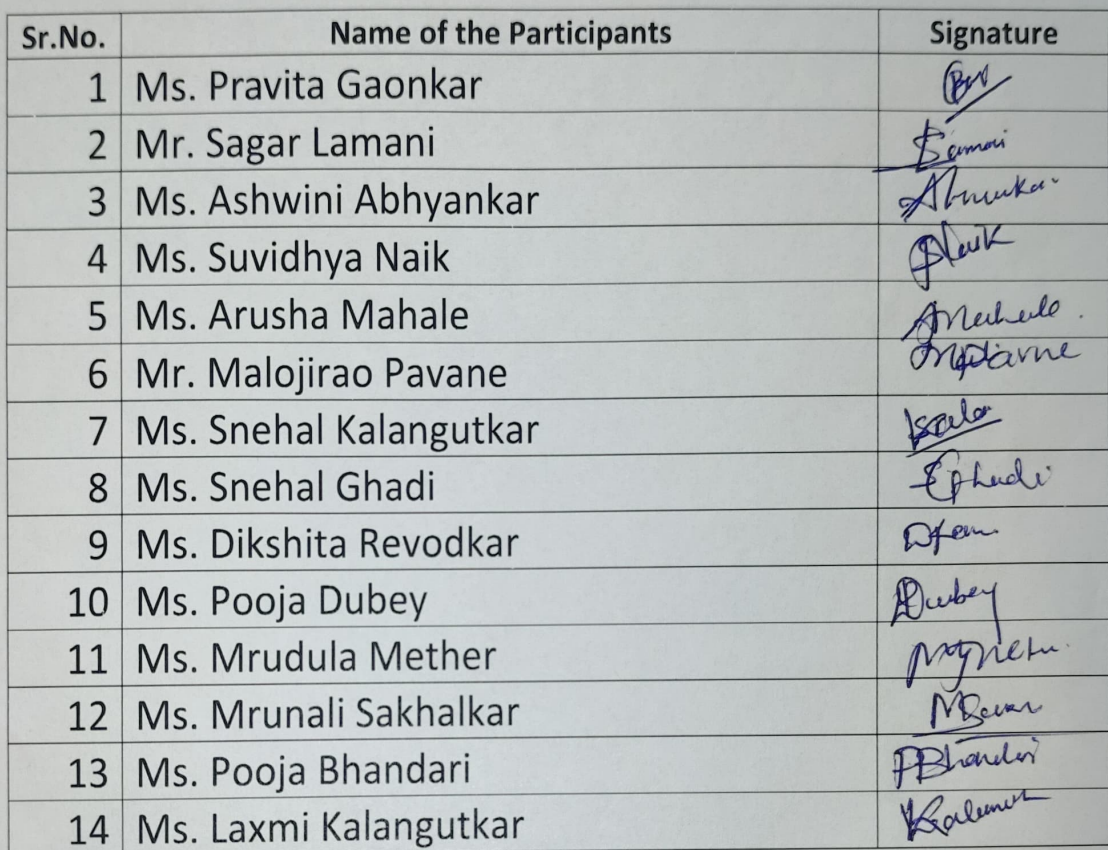 Sr.No. Name of the Participants Signature
1 Ms. Pravita Gaonkar
2 Mr. Sagar Lamani
3 Ms. Ashwini Abhyankar
4 Ms. Suvidhya Naik Naik
5 Ms. Arusha Mahale AMahale.
6 Mr. Malojirao Pavane
7 Ms. Snehal Kalangutkar
8 Ms. Snehal Ghadi SGhadi
9 Ms. Dikshita Revodkar
10 Ms. Pooja Dubey PDubey
11 Ms. Mrudula Mether
12 Ms. Mrunali Sakhalkar
13 Ms. Pooja Bhandari PBhandari
14 Ms. Laxmi Kalangutkar